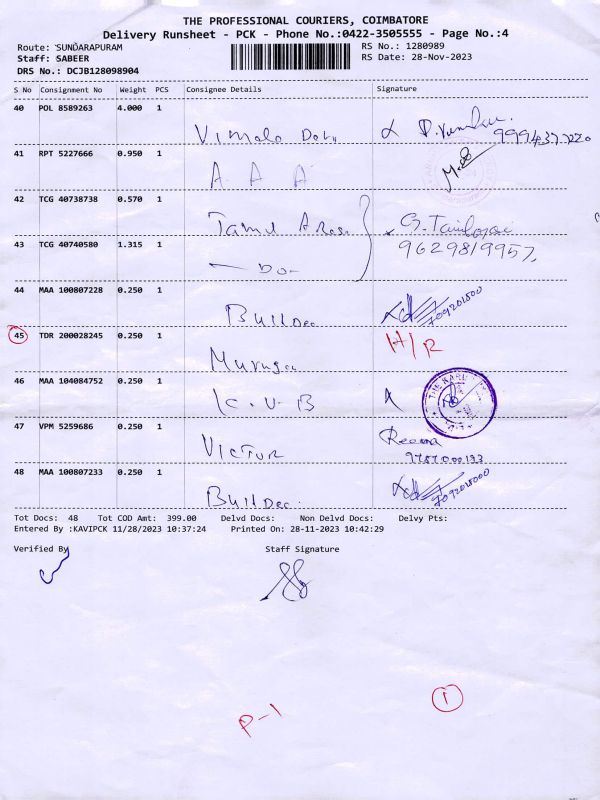 THE PROFESSIONAL COURIERS, COIMBATORE
Delivery Runsheet - PCK - Phone No.:0422-3505555 - Page No.:4
Route: SUNDARAPURAM RS No.: 1280989
Staff: SABEER RS Date: 28-Nov-2023
DRS No.: DCJB128098904
S No Consignment No Weight PCS Consignee Details Signature
40 POL 8589263 4.000 1
Vimala
41 RPT 5227666 0.950 1
A. A A
42 TCG 40738738 0.570 1
Tamil
43 TCG 40740580 1.315 1 9629819957
- Do -
44 MAA 100807228 0.250 1
BuilDec
45 TDR 200028245 0.250 1 H/R
Murugan
46 MAA 104084752 0.250 1
K. V B
47 VPM 5259686 0.250 1
VICTUR Reena
48 MAA 100807233 0.250 1
BuilDec.
Tot Docs: 48 Tot COD Amt: 399.00 Delvd Docs: Non Delvd Docs: Delvy Pts:
Entered By :KAVIPCK 11/28/2023 10:37:24 Printed On: 28-11-2023 10:42:29
Verified By Staff Signature
1
P-1